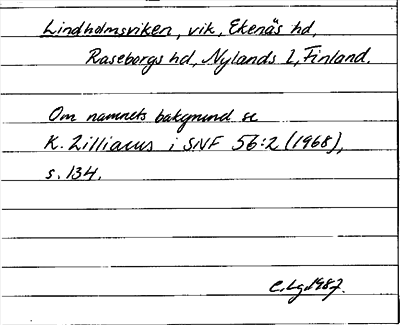 Lindholmsviken, vik, Ekenäs hd,
Raseborgs hd, Nylands l, Finland.
Om namnets bakgrund se
K. Zilliacus i SNF 56:2 (1968),
s. 134.
C. Lg 1987.